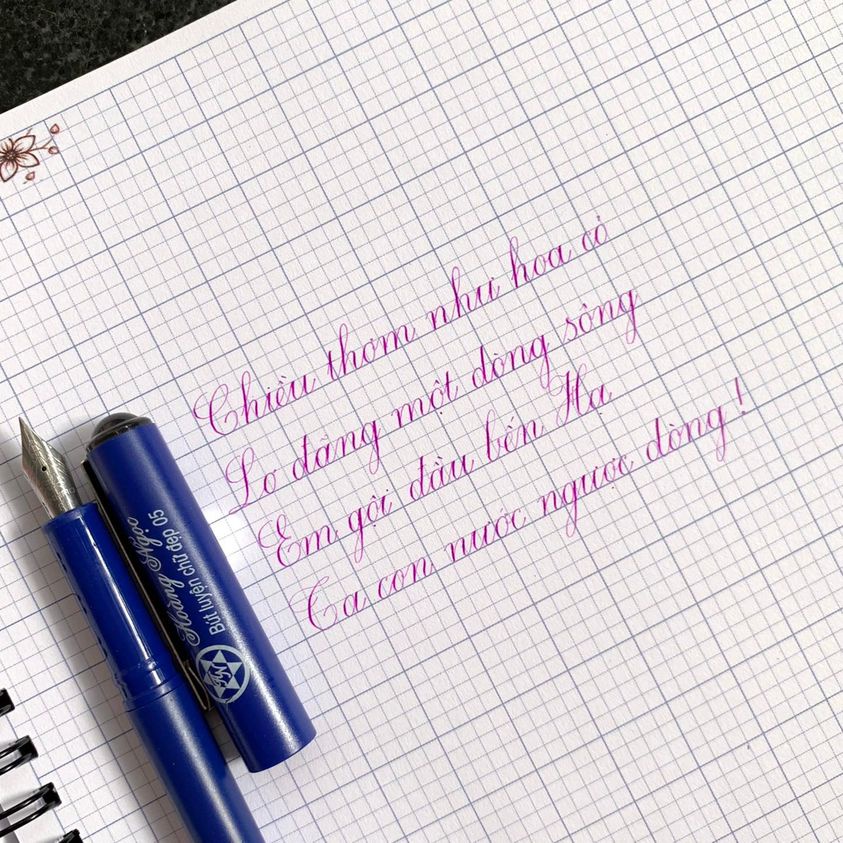 Chiều thơm như hoa cỏ
Lơ đãng một dòng sông
Em gội đầu bến Hạ
Ta con nước ngược dòng!
Hoàng Ngọc
Bút luyện chữ đẹp 05